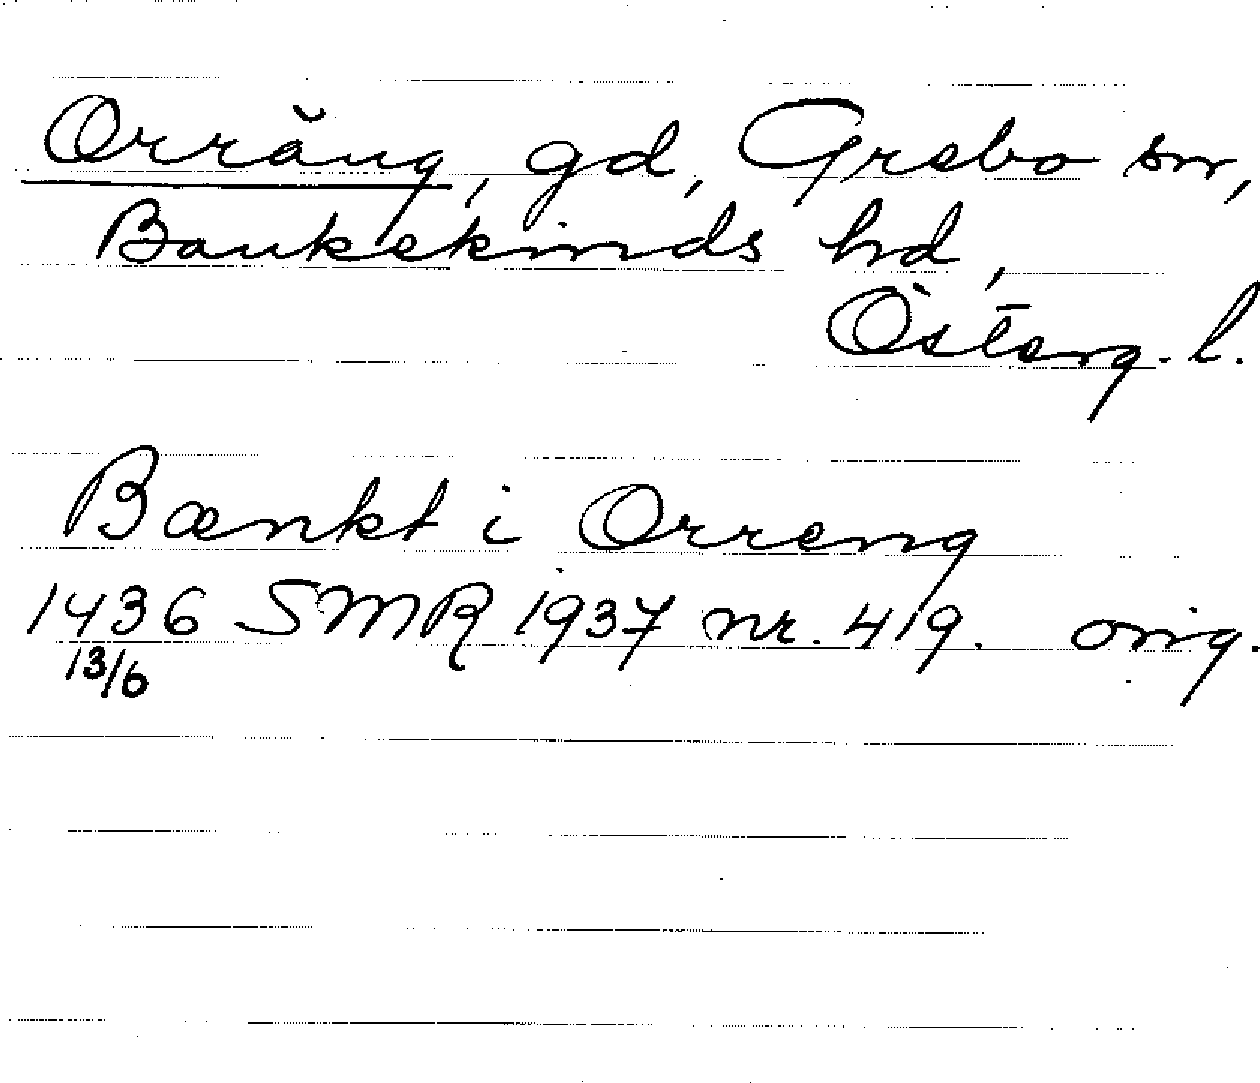 Orräng, gd, Grebo sn,
Bankekinds hd,
Österg. l.
Bænkt i Orreng
1436 SMR 1937 nr. 419. orig.
13/6